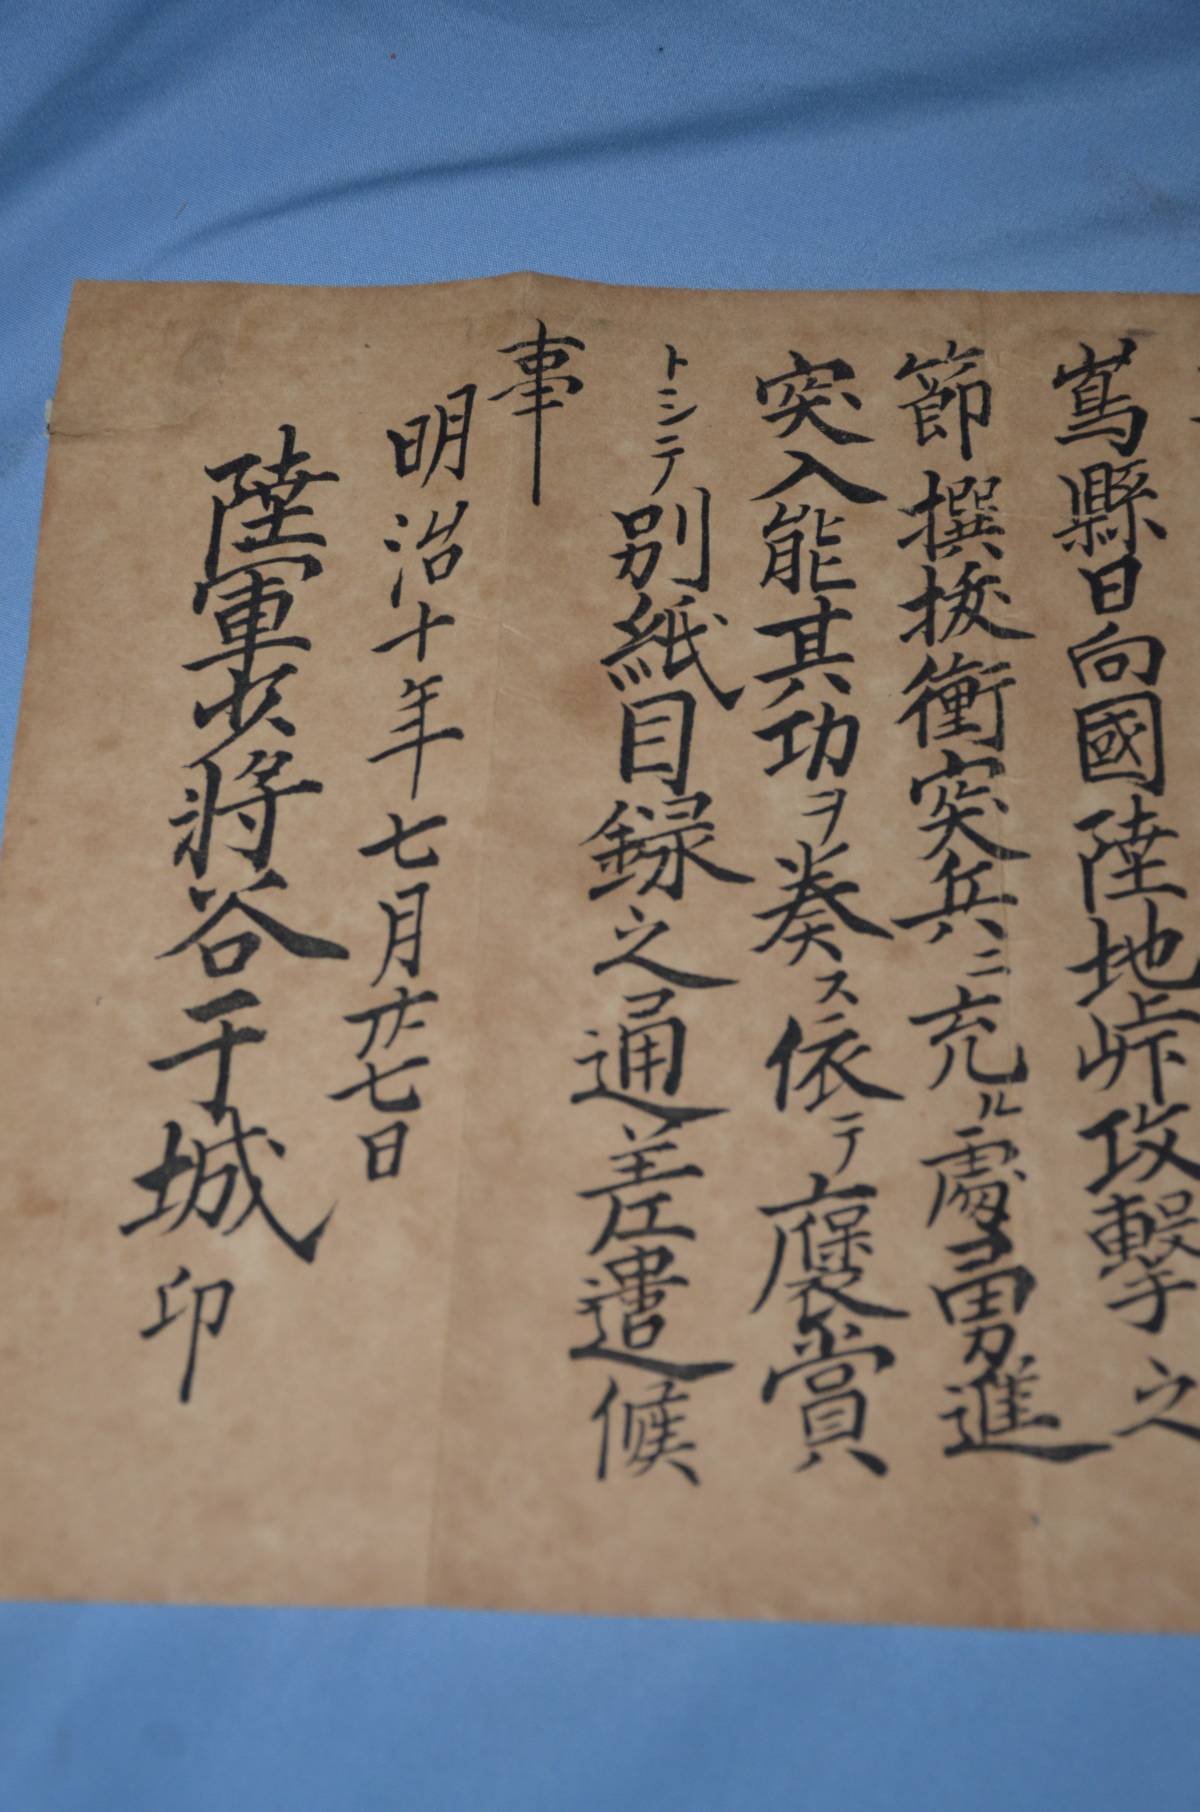 嶌縣日向國陸地峠攻撃之
節撰抜衝突兵ニ充ル處勇進
突入能其功ヲ奏ス依テ褒賞
トシテ別紙目録之通差遣候
事
明治十年七月廿七日
陸軍少将谷干城印